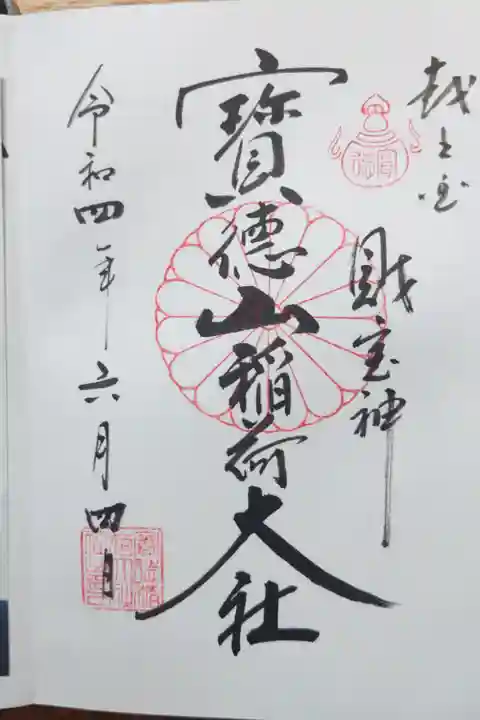 越之国
財宝神
寶德山稲荷大社
令和四年六月四日